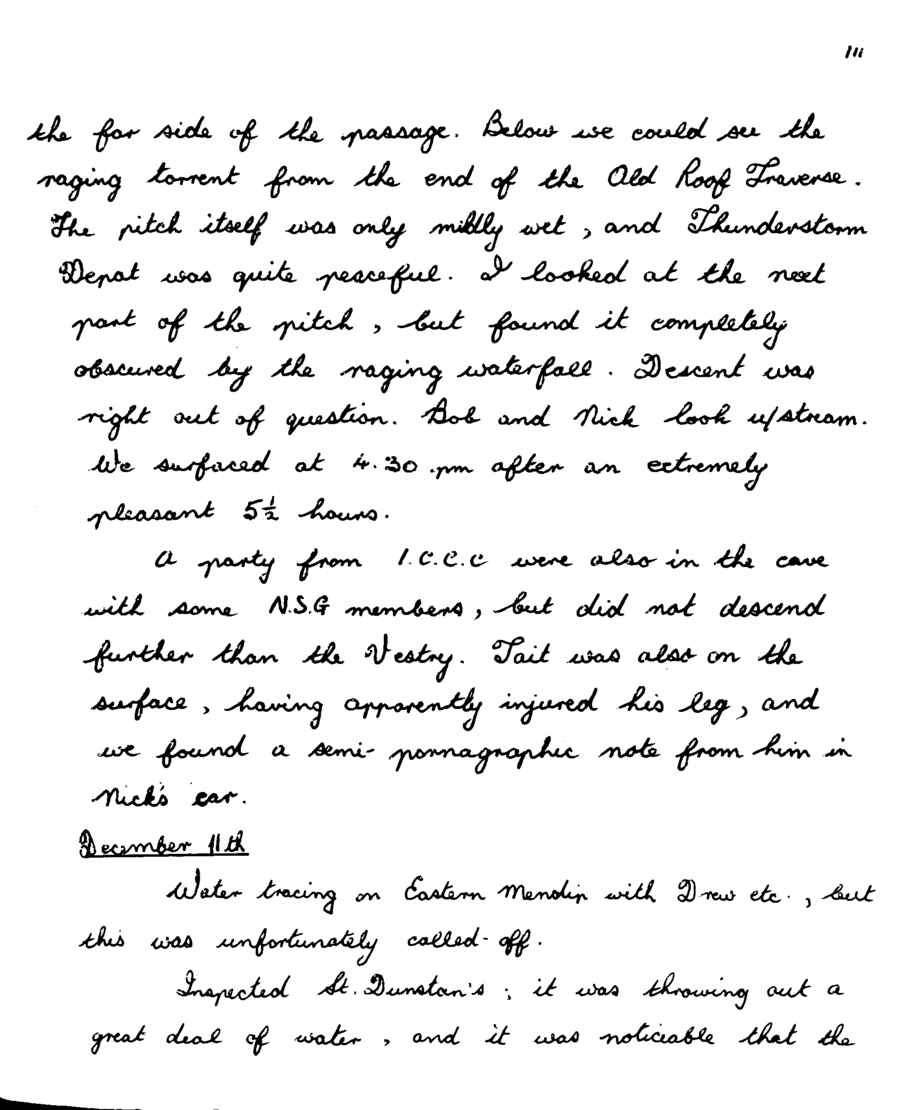 111
the far side of the passage. Below we could see the
raging torrent from the end of the Old Roof Traverse.
The pitch itself was only mildly wet, and Thunderstorm
Depat was quite peaceful. I looked at the next
part of the pitch, but found it completely
obscured by the raging waterfall. Descent was
right out of question. Bob and Nick look u/stream.
We surfaced at 4.30.pm after an extremely
pleasant 5½ hours.
A party from I.C.C.C were also in the cave
with some N.S.G members, but did not descend
further than the Vestry. Tait was also on the
surface, having apparently injured his leg, and
we found a semi-pornagraphic note from him in
Nick's car.
December 11th
Water tracing on Eastern Mendip with Drew etc., but
this was unfortunately called-off.
Inspected St. Dunstan's; it was throwing out a
great deal of water, and it was noticiable that the